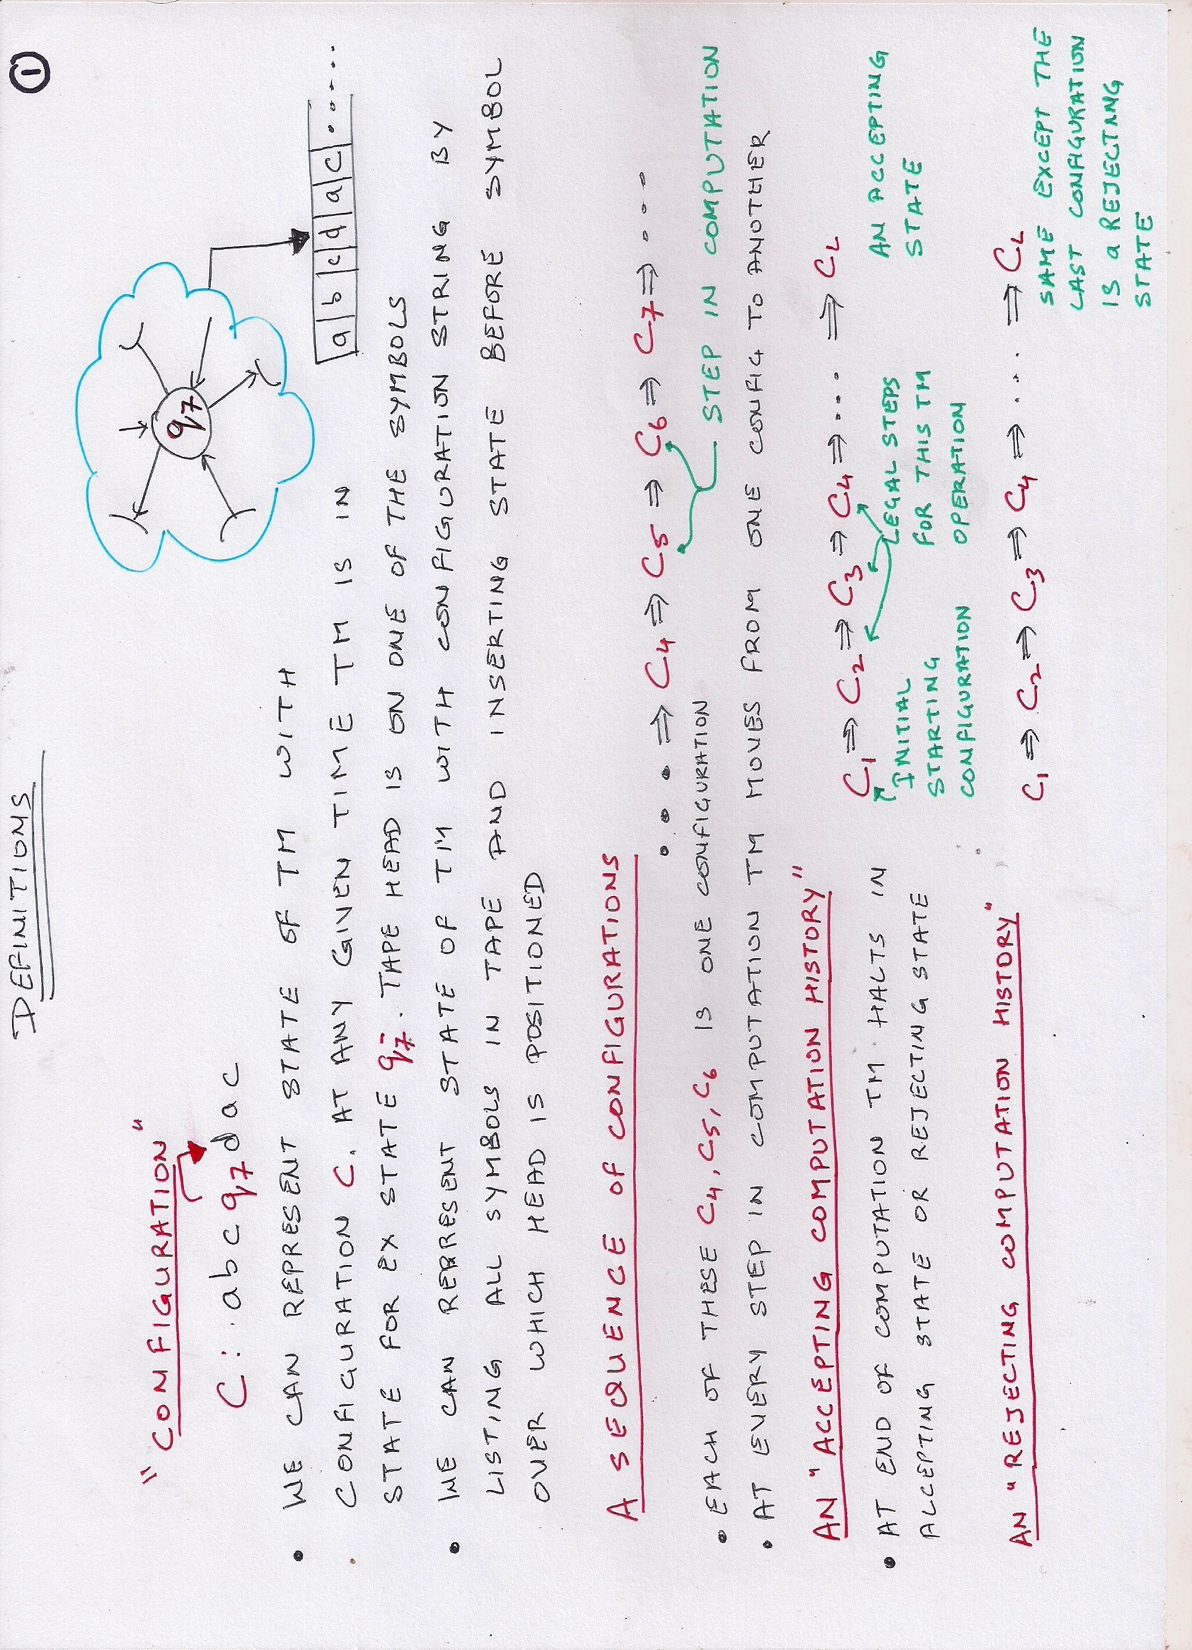 ①
DEFINITIONS
"CONFIGURATION"
C: abcq7dac
q7
a b c d a c .....
• WE CAN REPRESENT STATE OF TM WITH
CONFIGURATION C. AT ANY GIVEN TIME TM IS IN
STATE FOR EX STATE q7. TAPE HEAD IS ON ONE OF THE SYMBOLS
• WE CAN REPRESENT STATE OF TM WITH CONFIGURATION STRING BY
LISTING ALL SYMBOLS IN TAPE AND INSERTING STATE BEFORE SYMBOL
OVER WHICH HEAD IS POSITIONED
A SEQUENCE OF CONFIGURATIONS
• • • ⇒ C4 ⇒ C5 ⇒ C6 ⇒ C7 ⇒ ....
STEP IN COMPUTATION
• EACH OF THESE C4, C5, C6 IS ONE CONFIGURATION
• AT EVERY STEP IN COMPUTATION TM MOVES FROM ONE CONFIG TO ANOTHER
AN "ACCEPTING COMPUTATION HISTORY"
C1 ⇒ C2 ⇒ C3 ⇒ C4 ⇒ ... ⇒ CL
INITIAL
STARTING
CONFIGURATION
LEGAL STEPS
FOR THIS TM
OPERATION
AN ACCEPTING
STATE
• AT END OF COMPUTATION TM HALTS IN
ACCEPTING STATE OR REJECTING STATE
AN "REJECTING COMPUTATION HISTORY"
C1 ⇒ C2 ⇒ C3 ⇒ C4 ⇒ ... ⇒ CL
SAME EXCEPT THE
LAST CONFIGURATION
IS a REJECTING
STATE